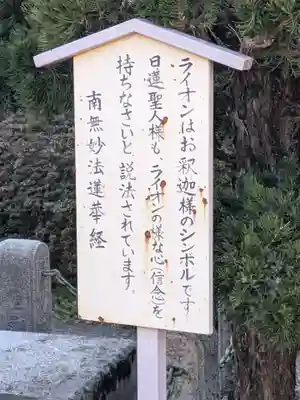 ライオンはお釈迦様のシンボルです
日蓮聖人様も ライオンの様な心(信念)を
持ちなさいと 説法されています。
南無妙法蓮華経